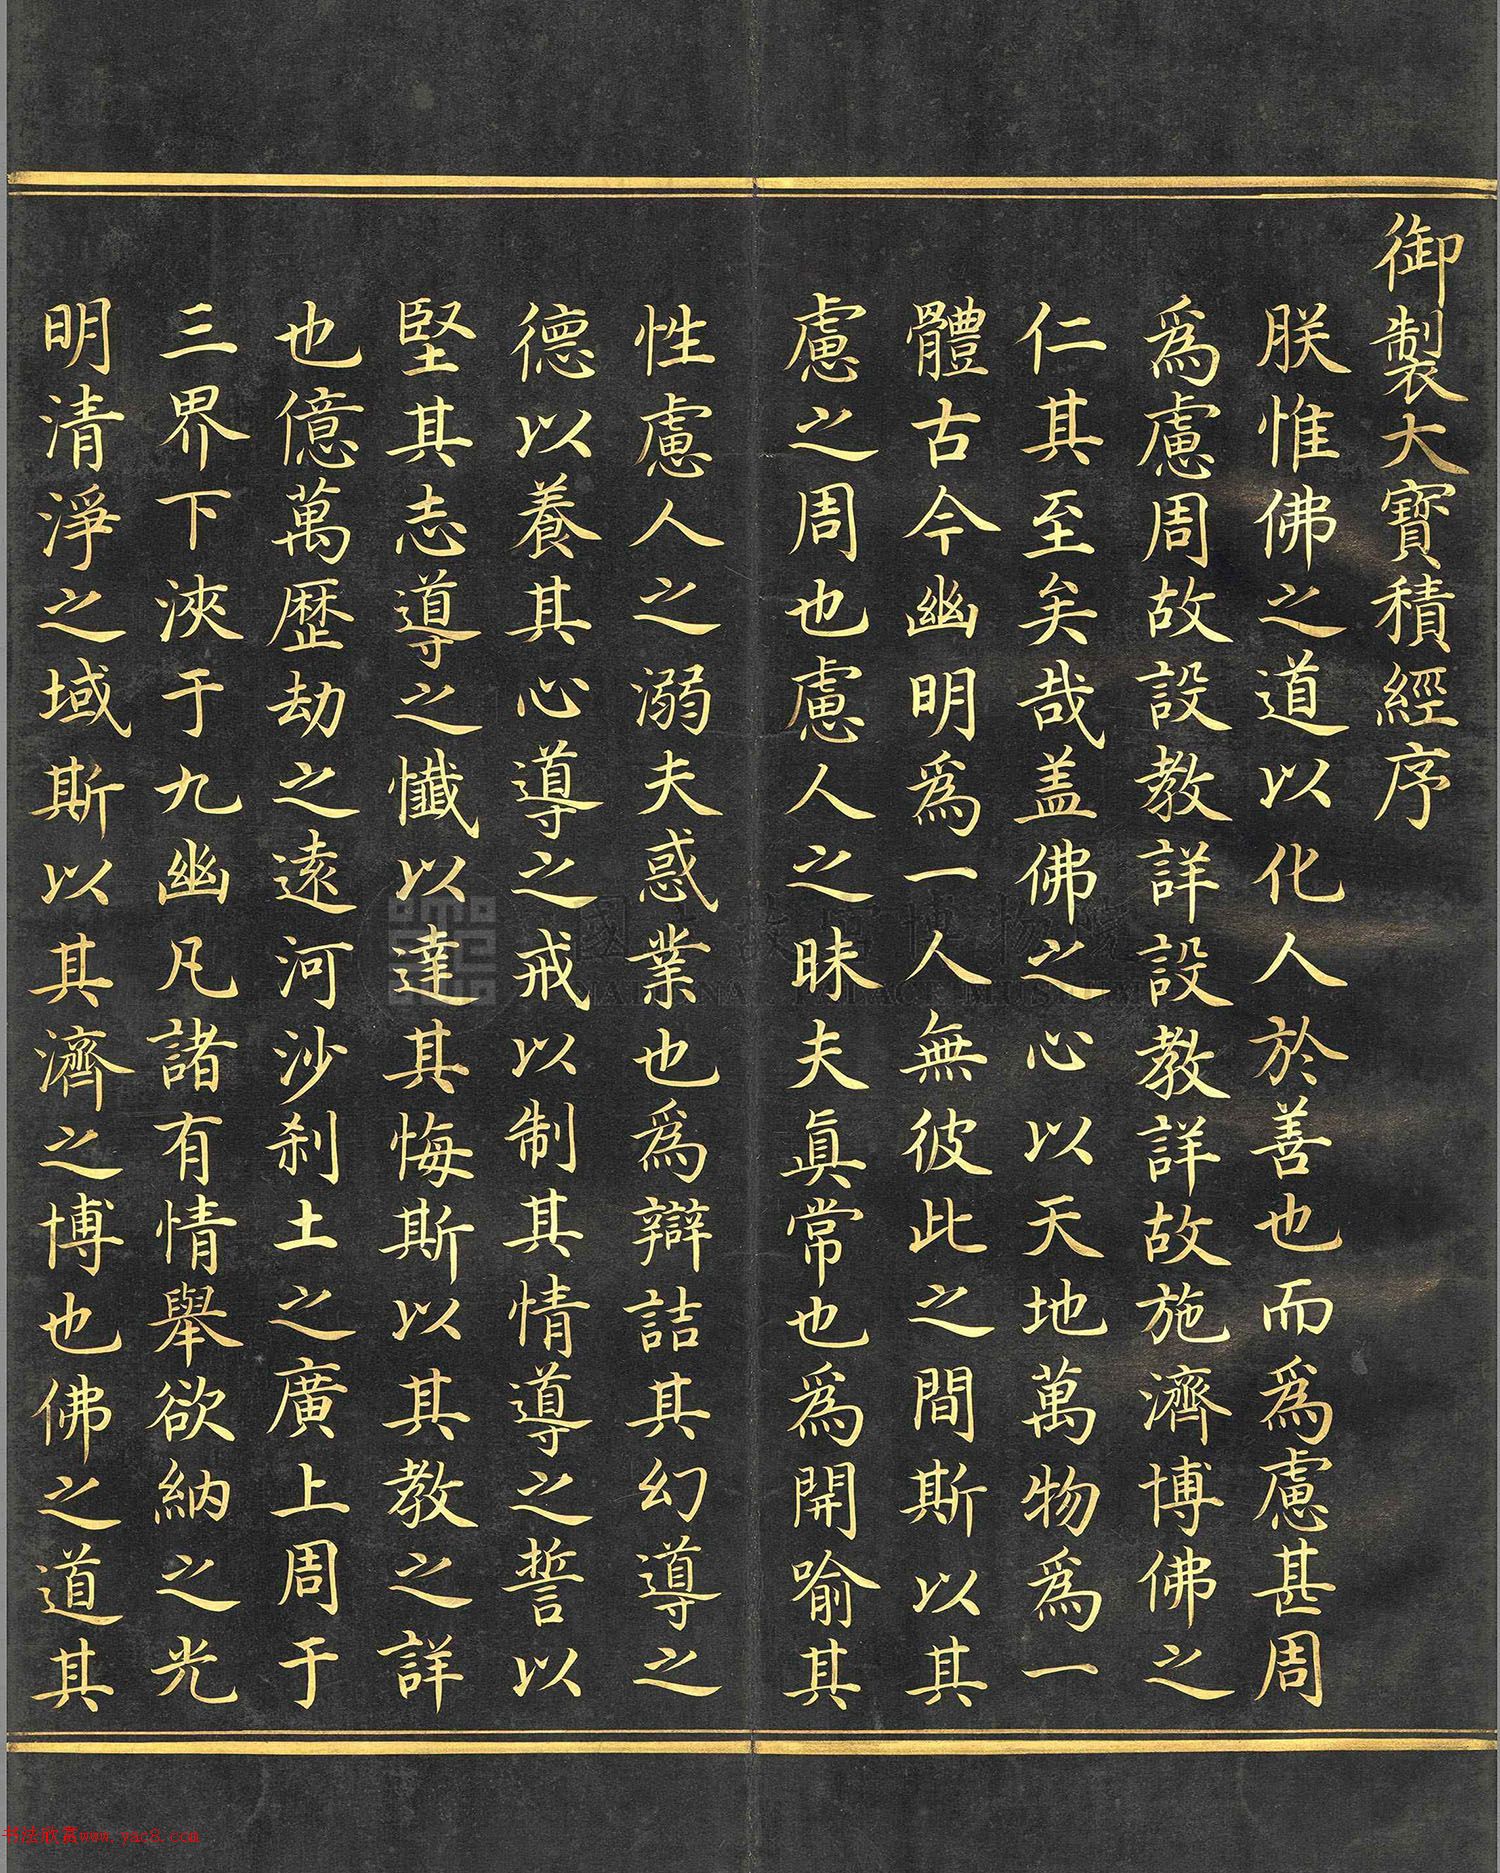 御製大寶積經序
朕惟佛之道以化人於善也而為慮甚周
為慮周故設教詳設教詳故施濟博佛之
仁其至矣哉盖佛之心以天地萬物為一
體古今幽明為一人無彼此之間斯以其
慮之周也慮人之昧夫眞常也為開喻其
性慮人之溺夫惑業也為辯詰其幻導之
德以養其心導之戒以制其情導之誓以
堅其志導之懺以達其悔斯以其教之詳
也億萬歷劫之遠河沙刹土之廣上周于
三界下浹于九幽凡諸有情舉欲納之光
明清淨之域斯以其濟之博也佛之道其
國立故宮博物院
NATIONAL PALACE MUSEUM
书法欣赏www.yac8.com